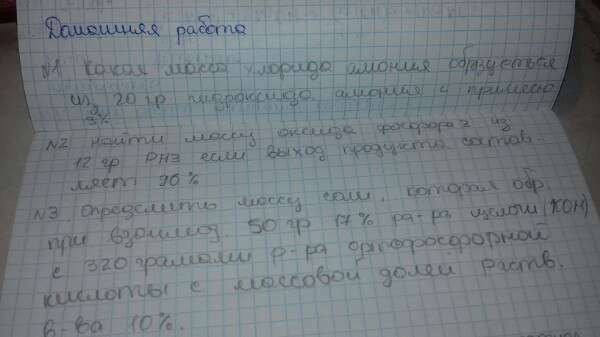 Домашняя работа
N1 Какая масса хлорида амония образуеться
из 20 гр гидроксида амония с примесью
3%
N2 найти массу оксида фосфора 2 из
12 гр PH3 если выход продукта состав-
ляет 90%
N3 определить массу соли, которая обр.
при взаимод. 50 гр 17% ра-ра щелочи (KOH)
с 320 грамами р-ра ортофосфорной
кислоты с массовой долей раств.
в-ва 10%.